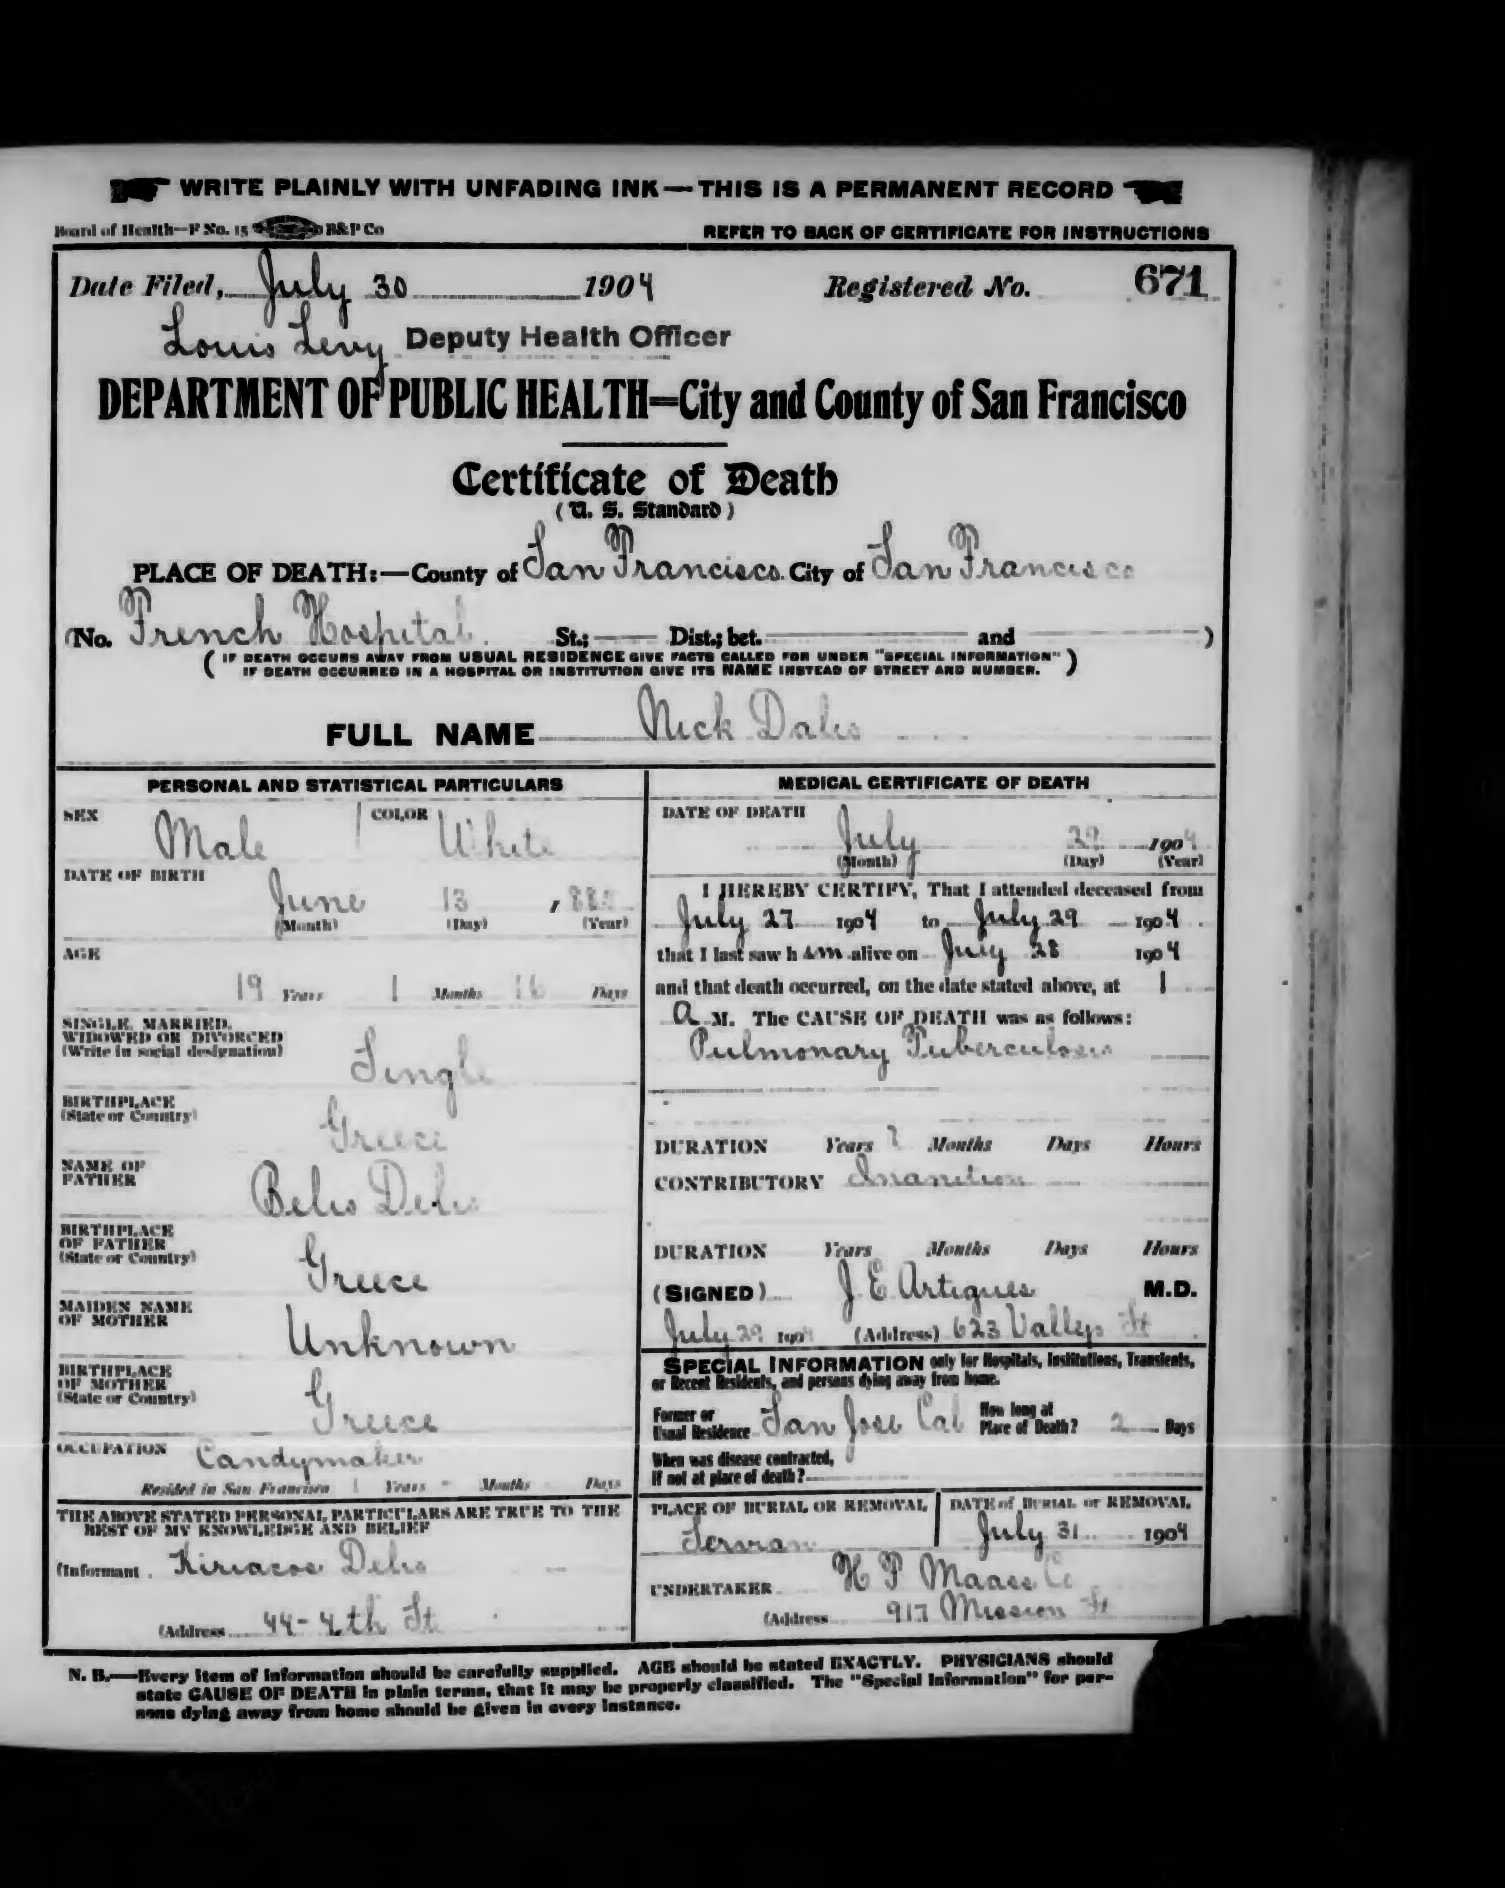 WRITE PLAINLY WITH UNFADING INK — THIS IS A PERMANENT RECORD
Board of Health—F No. 15 B&P Co REFER TO BACK OF CERTIFICATE FOR INSTRUCTIONS
Date Filed, July 30 1904 Registered No. 671
Louis Levy Deputy Health Officer
DEPARTMENT OF PUBLIC HEALTH=City and County of San Francisco
Certificate of Death
(U. S. Standard)
PLACE OF DEATH:—County of San Francisco City of San Francisco
(No. French Hospital. St.; Dist.; bet. and )
( IF DEATH OCCURS AWAY FROM USUAL RESIDENCE GIVE FACTS CALLED FOR UNDER "SPECIAL INFORMATION" )
IF DEATH OCCURRED IN A HOSPITAL OR INSTITUTION GIVE ITS NAME INSTEAD OF STREET AND NUMBER.
FULL NAME Nick Dalis
PERSONAL AND STATISTICAL PARTICULARS
SEX Male COLOR White
DATE OF BIRTH
June 13 , 885
(Month) (Day) (Year)
AGE
19 Years 1 Months 16 Days
SINGLE, MARRIED,
WIDOWED OR DIVORCED
(Write in social designation) Single
BIRTHPLACE
(State or Country) Greece
NAME OF
FATHER Belis Delis
BIRTHPLACE
OF FATHER
(State or Country) Greece
MAIDEN NAME
OF MOTHER Unknown
BIRTHPLACE
OF MOTHER
(State or Country) Greece
OCCUPATION Candymaker
Resided in San Francisco 1 Years - Months Days
THE ABOVE STATED PERSONAL PARTICULARS ARE TRUE TO THE
BEST OF MY KNOWLEDGE AND BELIEF
(Informant Kiriacos Delis
(Address 44-4th St
MEDICAL CERTIFICATE OF DEATH
DATE OF DEATH
July 29 1904
(Month) (Day) (Year)
I HEREBY CERTIFY, That I attended deceased from
July 27 1904 to July 29 1904
that I last saw h im alive on July 28 1904
and that death occurred, on the date stated above, at 1
A M. The CAUSE OF DEATH was as follows:
Pulmonary Tuberculosis
DURATION Years ? Months Days Hours
CONTRIBUTORY Inanition
DURATION Years Months Days Hours
(SIGNED) J. E. Artigues M.D.
July 29 1904 (Address) 623 Vallejo St
SPECIAL INFORMATION only for Hospitals, Institutions, Transients,
or Recent Residents, and persons dying away from home.
Former or
Usual Residence San Jose Cal How long at
Place of Death? 2 Days
When was disease contracted,
If not at place of death?
PLACE OF BURIAL OR REMOVAL DATE of BURIAL or REMOVAL
July 31 1904
UNDERTAKER H P Maass Co
(Address 917 Mission St
N. B.—Every item of information should be carefully supplied. AGE should be stated EXACTLY. PHYSICIANS should
state CAUSE OF DEATH in plain terms, that it may be properly classified. The "Special Information" for per-
sons dying away from home should be given in every instance.